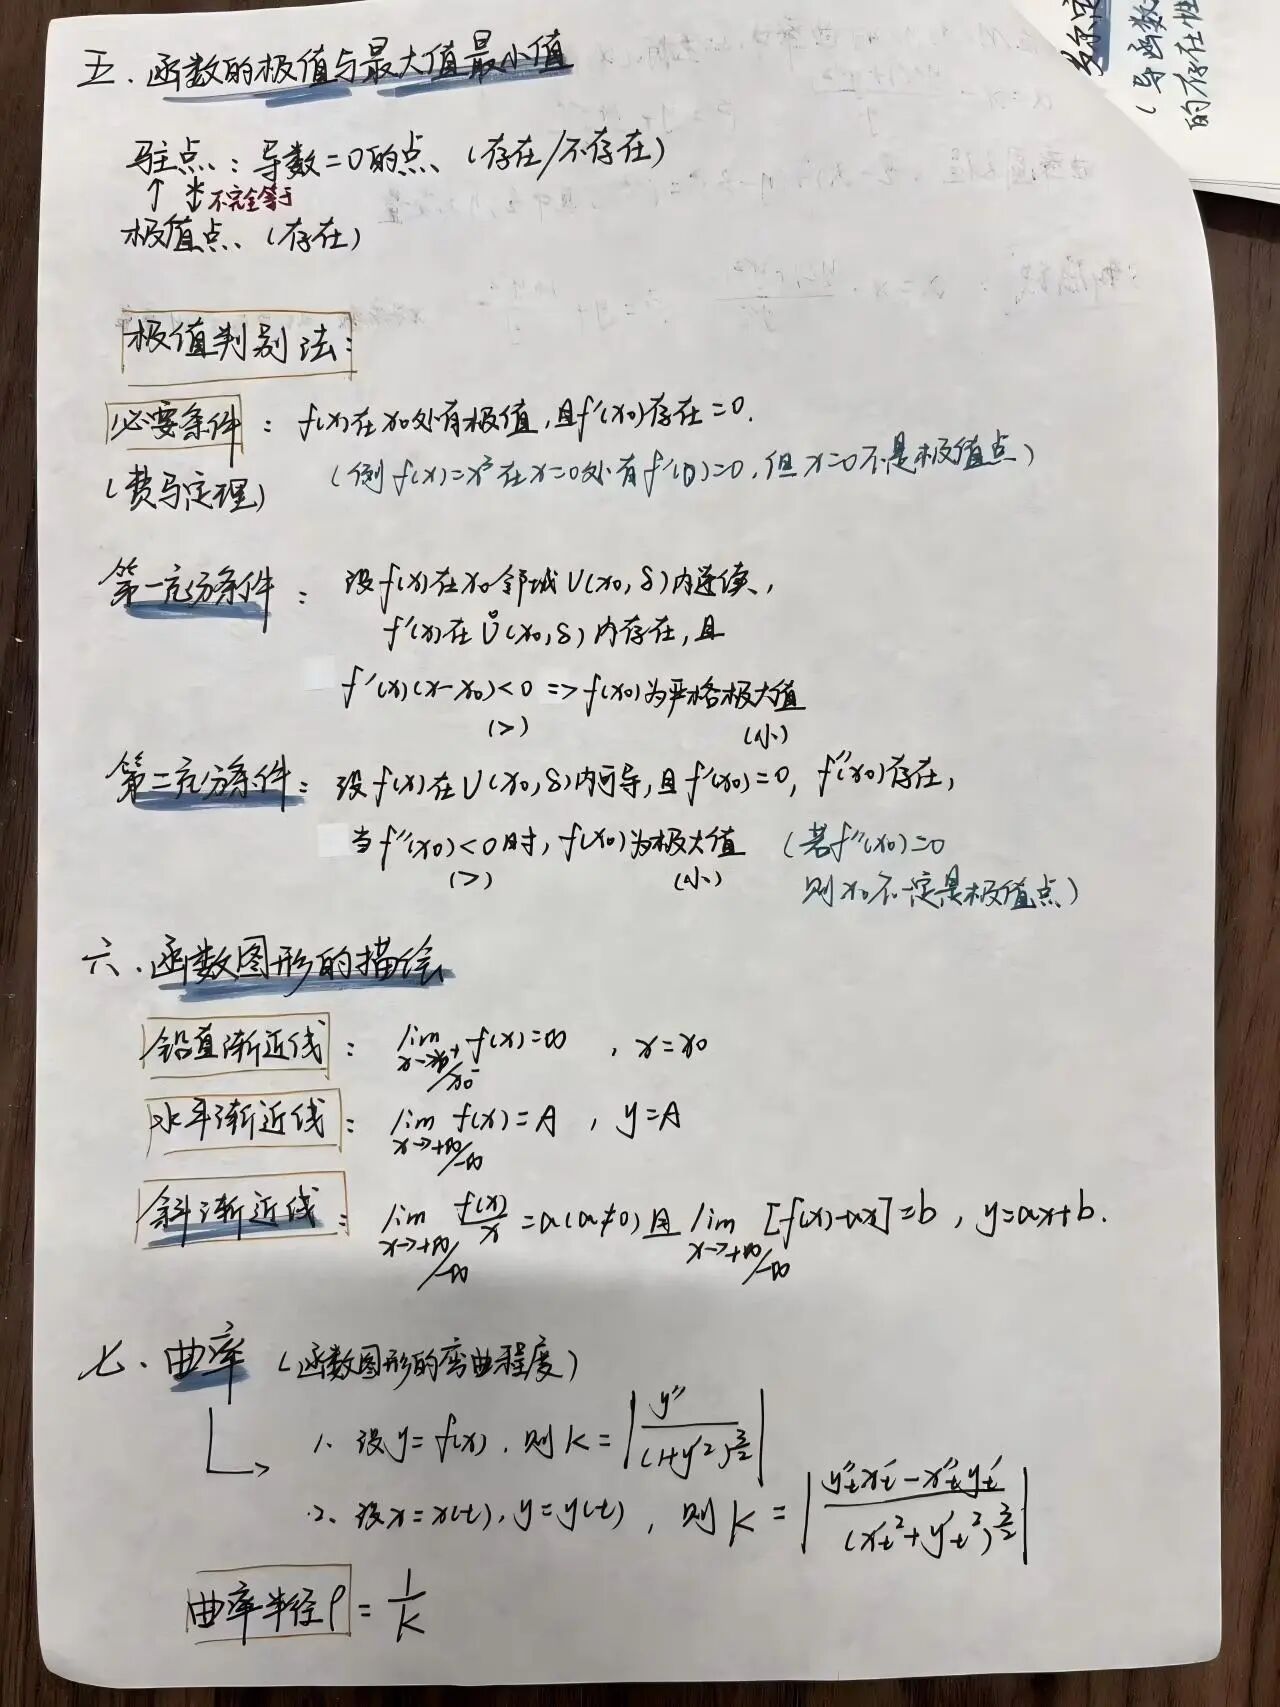 五、函数的极值与最大值最小值
驻点：导数=0的点、(存在/不存在)
↑ 不完全等于
极值点、(存在)
极值判别法：
必要条件：f(x)在x0处有极值,且f'(x0)存在=0.
(费马定理) (例f(x)=x³在x=0处有f'(0)=0,但x=0不是极值点)
第一充分条件：设f(x)在x0邻域U(x0,δ)内连续,
f'(x)在Ů(x0,δ)内存在,且
f'(x)(x-x0)<0 => f(x0)为严格极大值
(>) (小)
第二充分条件：设f(x)在U(x0,δ)内可导,且f'(x0)=0, f''(x0)存在,
当f''(x0)<0时, f(x0)为极大值 (若f''(x0)=0
(>) (小) 则x0不一定是极值点)
六、函数图形的描绘
铅直渐近线： lim x→x0+/x0- f(x)=∞ , x=x0
水平渐近线： lim x→+∞/-∞ f(x)=A , y=A
斜渐近线： lim x→+∞/-∞ f(x)/x =a(a≠0)且 lim x→+∞/-∞ [f(x)-ax]=b , y=ax+b.
七、曲率 (函数图形的弯曲程度)
1、设y=f(x), 则K=|y''/(1+y'²)^(3/2)|
2、设x=x(t), y=y(t), 则K=|(y''t x't - x''t y't)/(x't²+y't²)^(3/2)|
曲率半径ρ=1/K
(导函数
的存在性